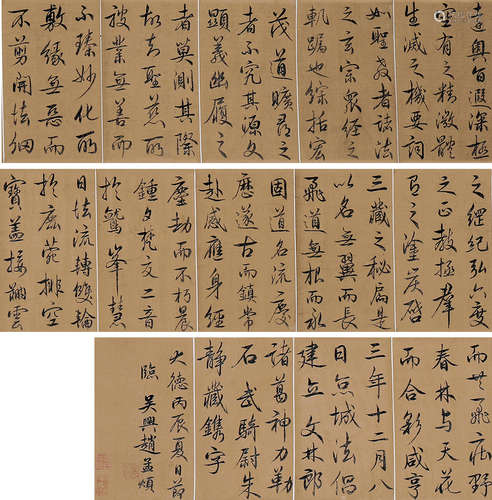 遠奧旨遐深極
空有之精微體
生滅之機要詞
如聖教者諸法
之玄宗眾經之
軌躅也綜括宏
茂道曠尋之
者不究其源文
顯義幽履之
者莫測其際
故知聖慈所
被業無善而
不臻妙化所
敷緣無惡而
不剪開法網
之綱紀弘六度
之正教拯羣
有之塗炭啓
三藏之秘扃是
以名無翼而長
飛道無根而永
固道名流慶
歷遂古而鎮常
赴感應身經
塵劫而不朽晨
鍾夕梵交二音
於鷲峯慧
日法流轉雙輪
於鹿菀排空
寶蓋接翔雲
而共飛莊野
春林與天花
而合彩咸亨
三年十二月八
日京城法侶
建立文林郎
諸葛神力勒
石武騎尉朱
靜藏鐫字
大德丙辰夏日節
臨 吳興趙孟頫